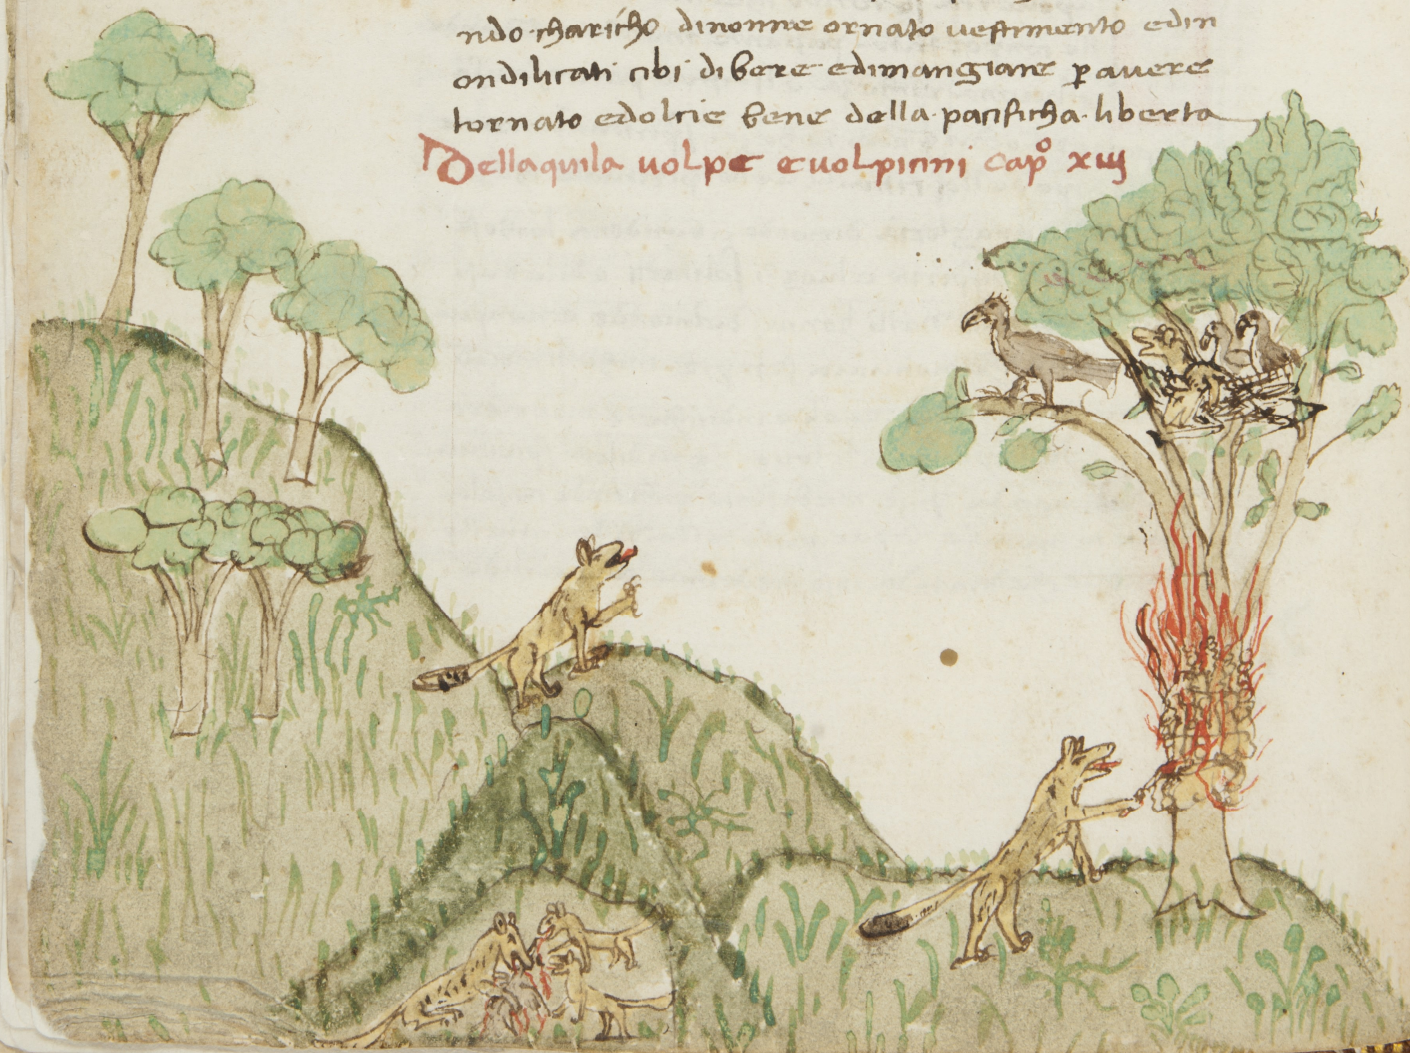 ndo charicho dinonne ornato vestimento edin
ondilicati cibi di bere edimangiare p avere
tornato edolcie bene della pacificha liberta
Dellaquila volpe evolpicini capº xiiij